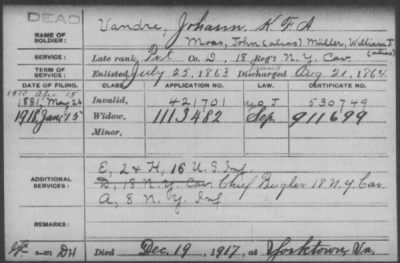 DEAD
NAME OF SOLDIER: Vandre, Johann K. F. A
Moas, John (alias) Müller, William J (alias)
SERVICE: Late rank, Pvt Co. D, 18 Reg't N.Y. Cav.
TERM OF SERVICE: Enlisted July 25, 1863 Discharged Aug. 21, 1864
DATE OF FILING. CLASS. APPLICATION NO. LAW. CERTIFICATE NO.
1881, May 26 Invalid, 421701 530749
1918 Jan 15 Widow, 1113482 Sep. 911699
Minor,
ADDITIONAL SERVICES: E, 2 & H, 16 U.S. Inf
D, 18 N.Y. Cav. Chief Bugler 18 N.Y. Cav.
A, 8 N.Y. Inf
REMARKS:
DH Died Dec. 19, 1917, at Yorktown, Va.